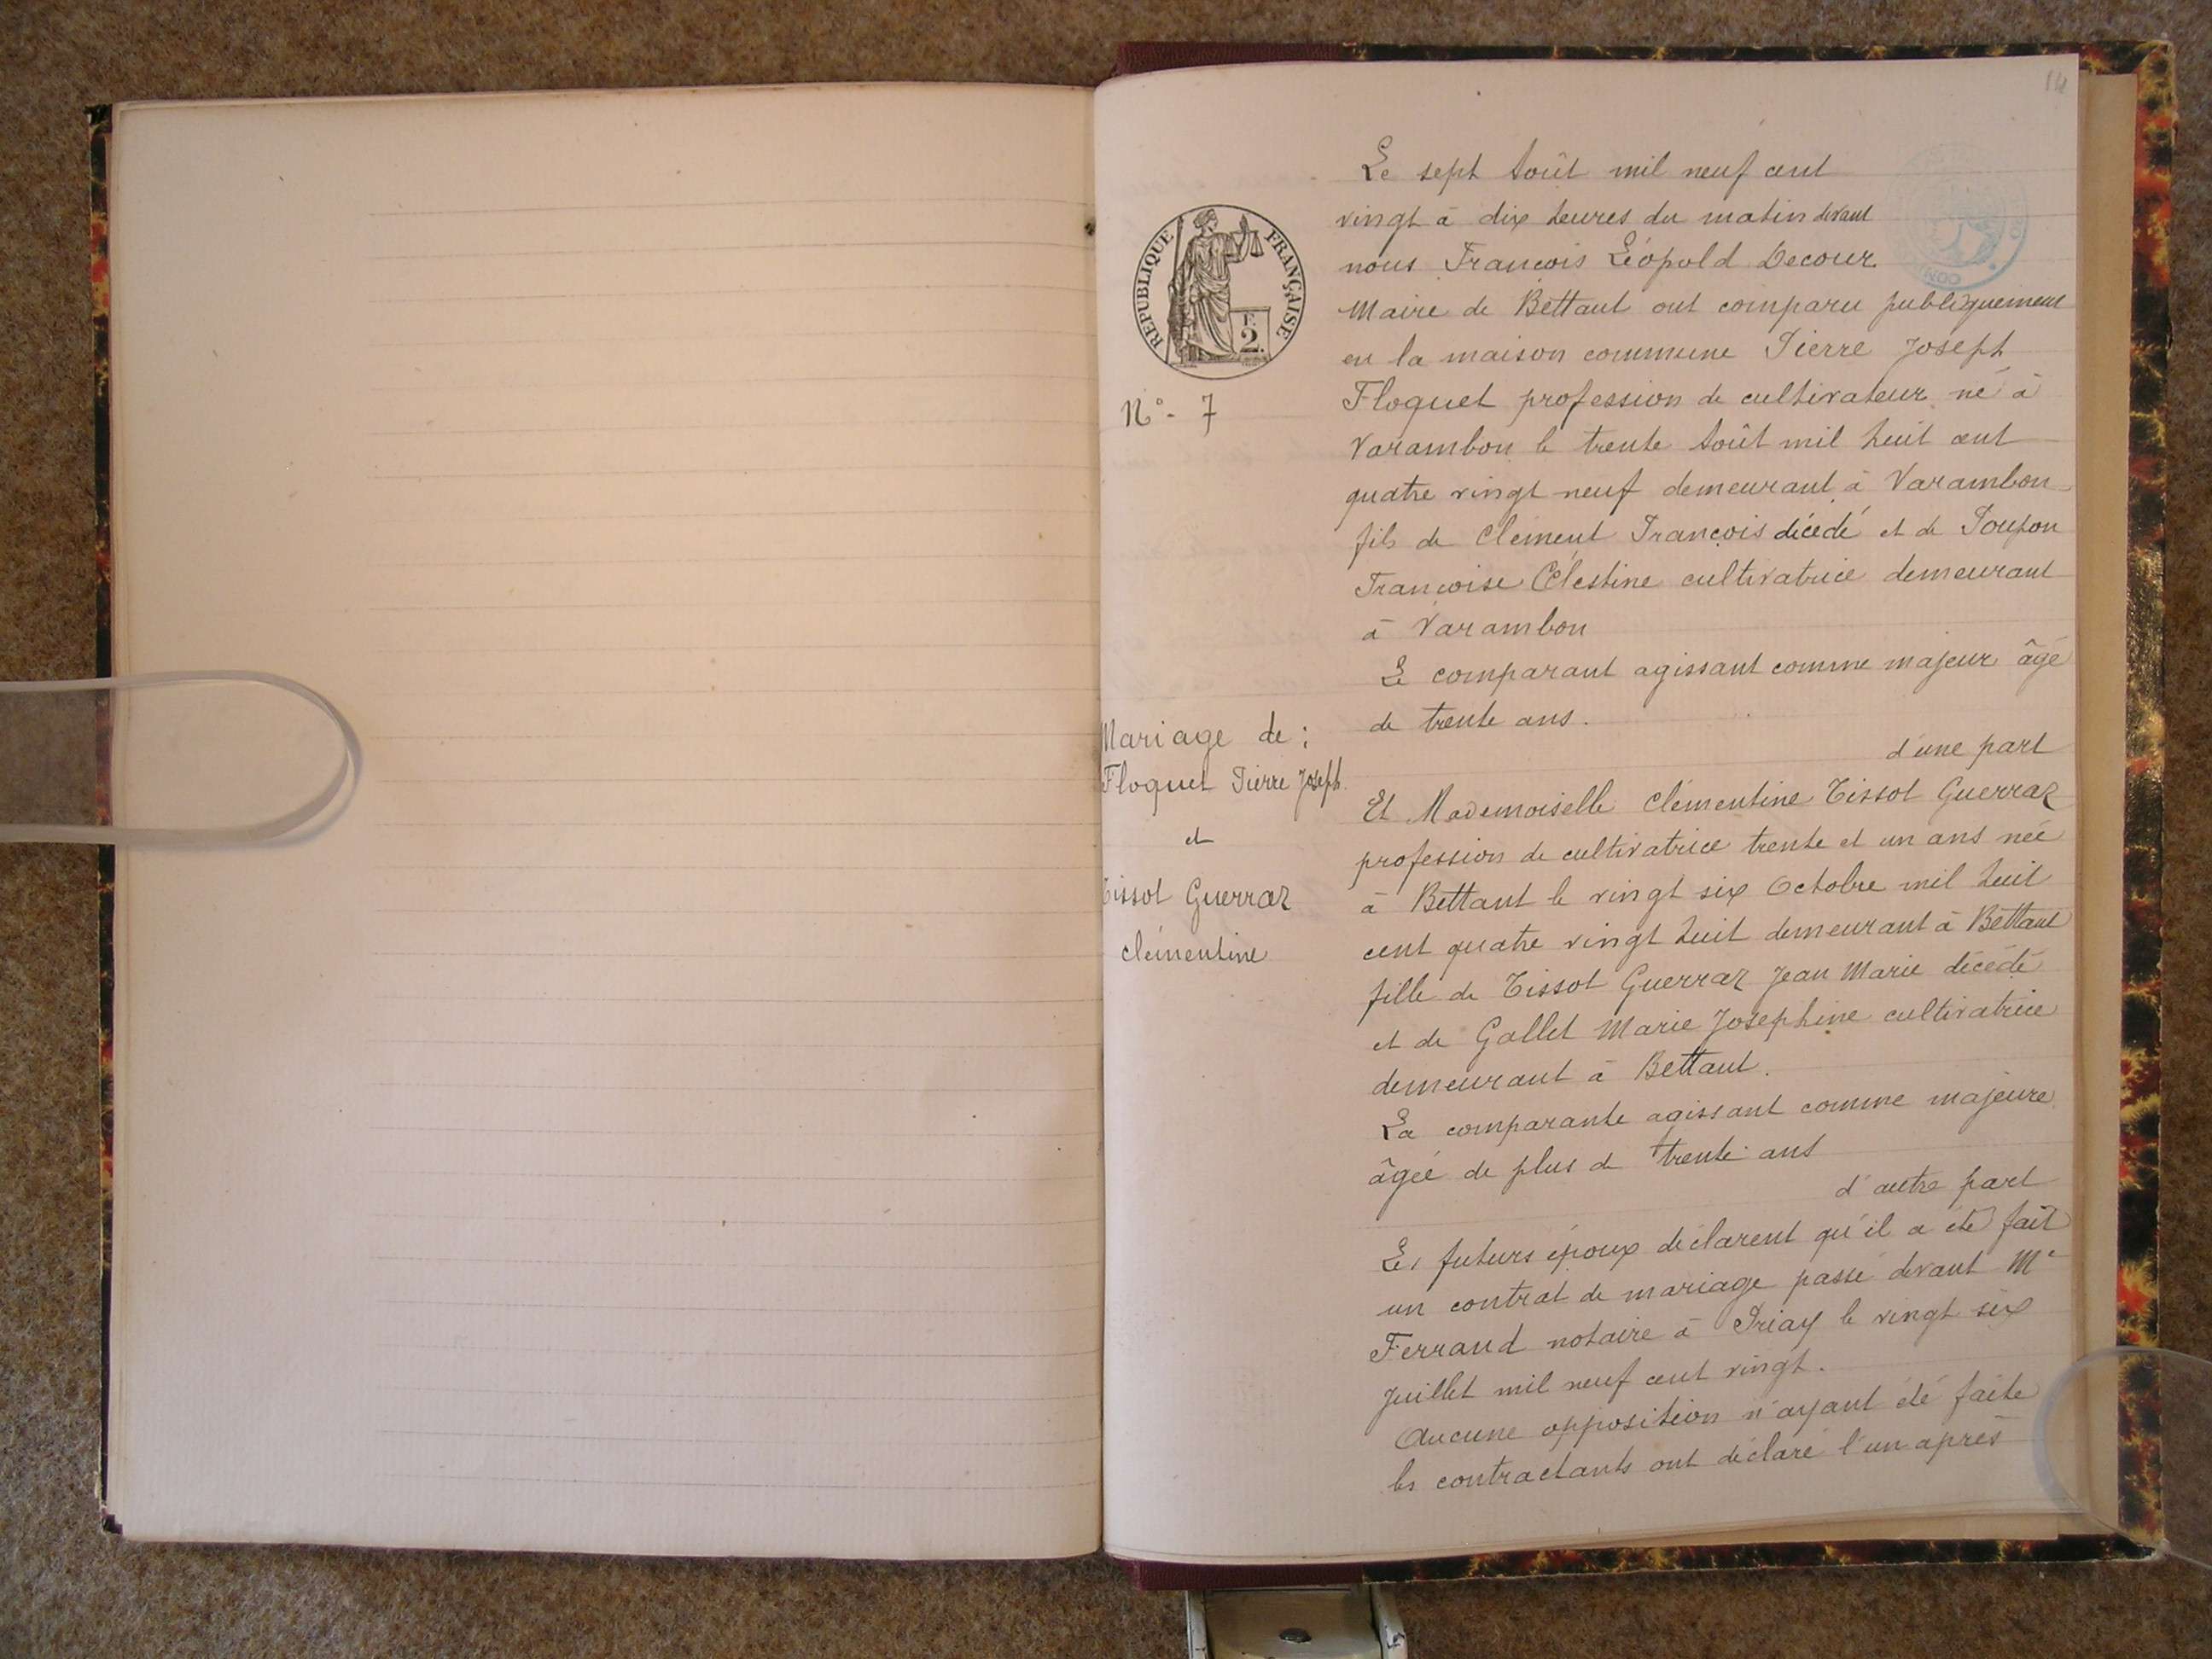 14
REPUBLIQUE FRANÇAISE
F.
2.
N° - 7
Mariage de :
Floquet Pierre Joseph
et
Tissot Guerraz
Clémentine
Le sept Août mil neuf cent
vingt à dix heures du matin devant
nous François Léopold Decour
Maire de Bettant ont comparu publiquement
en la maison commune Pierre Joseph
Floquet profession de cultivateur né à
Varambon le trente Août mil huit cent
quatre vingt neuf demeurant à Varambon
fils de Clément François décédé et de Poupon
Françoise Célestine cultivatrice demeurant
à Varambon
Le comparant agissant comme majeur âgé
de trente ans.
d'une part
Et Mademoiselle Clémentine Tissot Guerraz
profession de cultivatrice trente et un ans née
à Bettant le vingt six Octobre mil huit
cent quatre vingt huit demeurant à Bettant
fille de Tissot Guerraz Jean Marie décédé
et de Gallet Marie Josephine cultivatrice
demeurant à Bettant.
La comparante agissant comme majeure
âgée de plus de trente ans
d'autre part
Les futurs époux déclarent qu'il a été fait
un contrat de mariage passé devant Me
Ferrand notaire à Priay le vingt six
Juillet mil neuf cent vingt.
Aucune opposition n'ayant été faite
les contractants ont déclaré l'un après